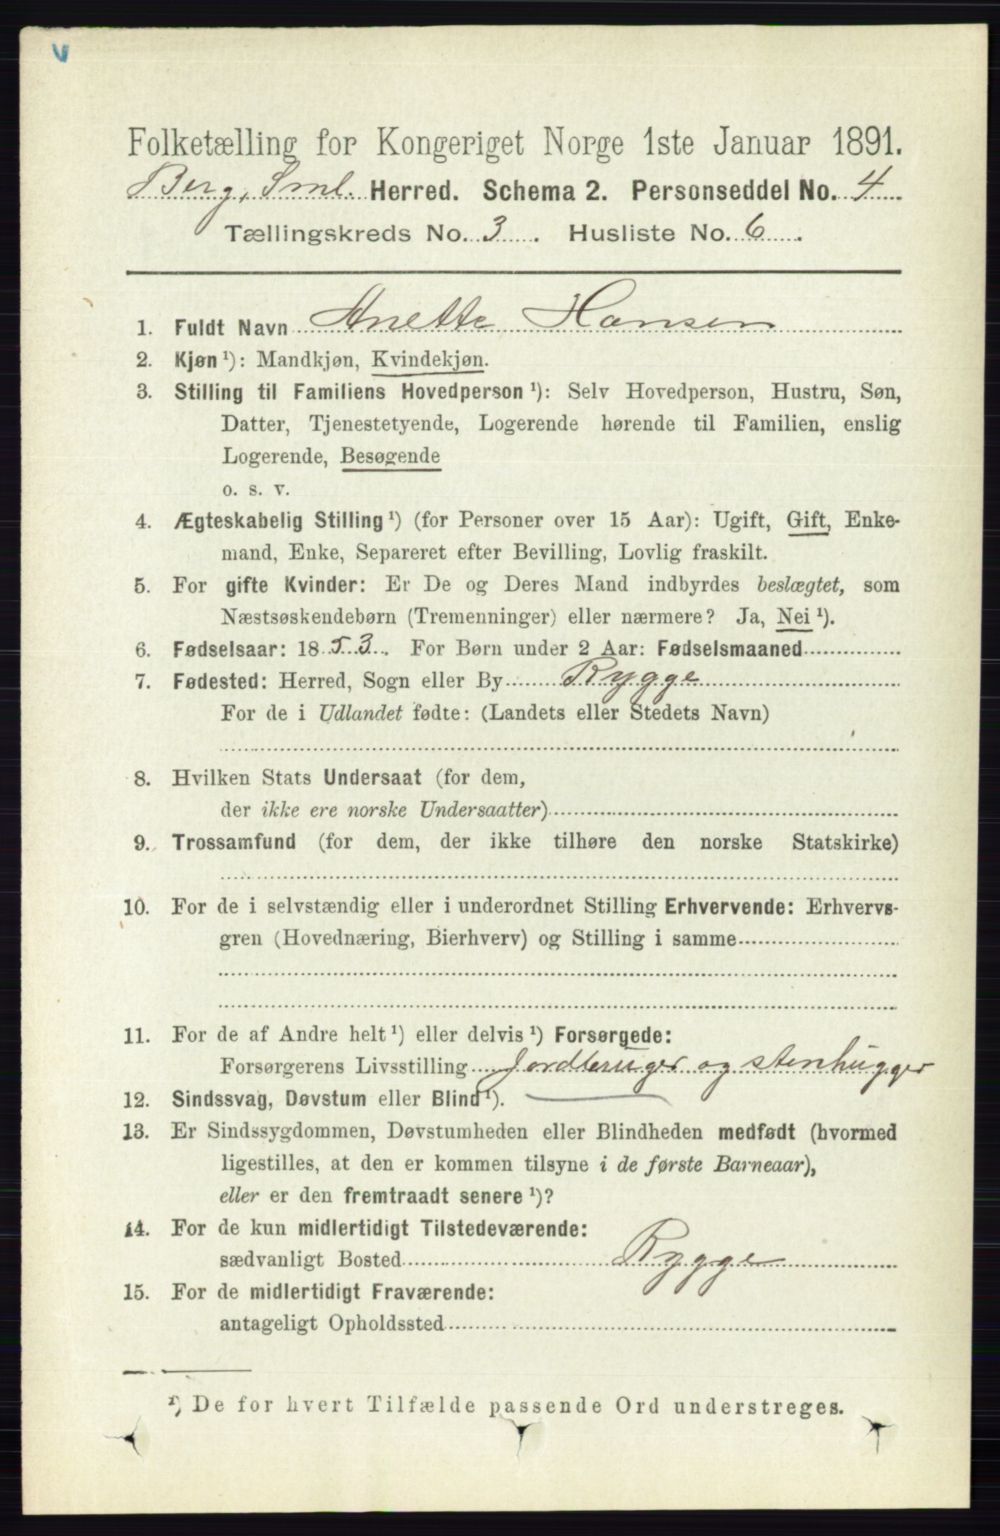 Folketælling for Kongeriget Norge 1ste Januar 1891.
Berg, Sml. Herred. Schema 2. Personseddel No. 4
Tællingskreds No. 3. Husliste No. 6.
1. Fuldt Navn Anette Hansen
2. Kjøn¹): Mandkjøn, Kvindekjøn.
3. Stilling til Familiens Hovedperson¹): Selv Hovedperson, Hustru, Søn,
Datter, Tjenestetyende, Logerende hørende til Familien, enslig
Logerende, Besøgende
o. s. v.
4. Ægteskabelig Stilling¹) (for Personer over 15 Aar): Ugift, Gift, Enke-
mand, Enke, Separeret efter Bevilling, Lovlig fraskilt.
5. For gifte Kvinder: Er De og Deres Mand indbyrdes beslægtet, som
Næstsøskendebørn (Tremenninger) eller nærmere? Ja, Nei¹).
6. Fødselsaar: 1853. For Børn under 2 Aar: Fødselsmaaned
7. Fødested: Herred, Sogn eller By Rygge
For de i Udlandet fødte: (Landets eller Stedets Navn)
8. Hvilken Stats Undersaat (for dem,
der ikke ere norske Undersaatter)
9. Trossamfund (for dem, der ikke tilhøre den norske Statskirke)
10. For de i selvstændig eller i underordnet Stilling Erhvervende: Erhvervs-
gren (Hovednæring, Bierhverv) og Stilling i samme
11. For de af Andre helt¹) eller delvis¹) Forsørgede:
Forsørgerens Livsstilling Jordbruger og stenhugger
12. Sindssvag, Døvstum eller Blind¹).
13. Er Sindssygdommen, Døvstumheden eller Blindheden medfødt (hvormed
ligestilles, at den er kommen tilsyne i de første Barneaar),
eller er den fremtraadt senere¹)?
14. For de kun midlertidigt Tilstedeværende:
sædvanligt Bosted Rygge
15. For de midlertidigt Fraværende:
antageligt Opholdssted
¹) De for hvert Tilfælde passende Ord understreges.